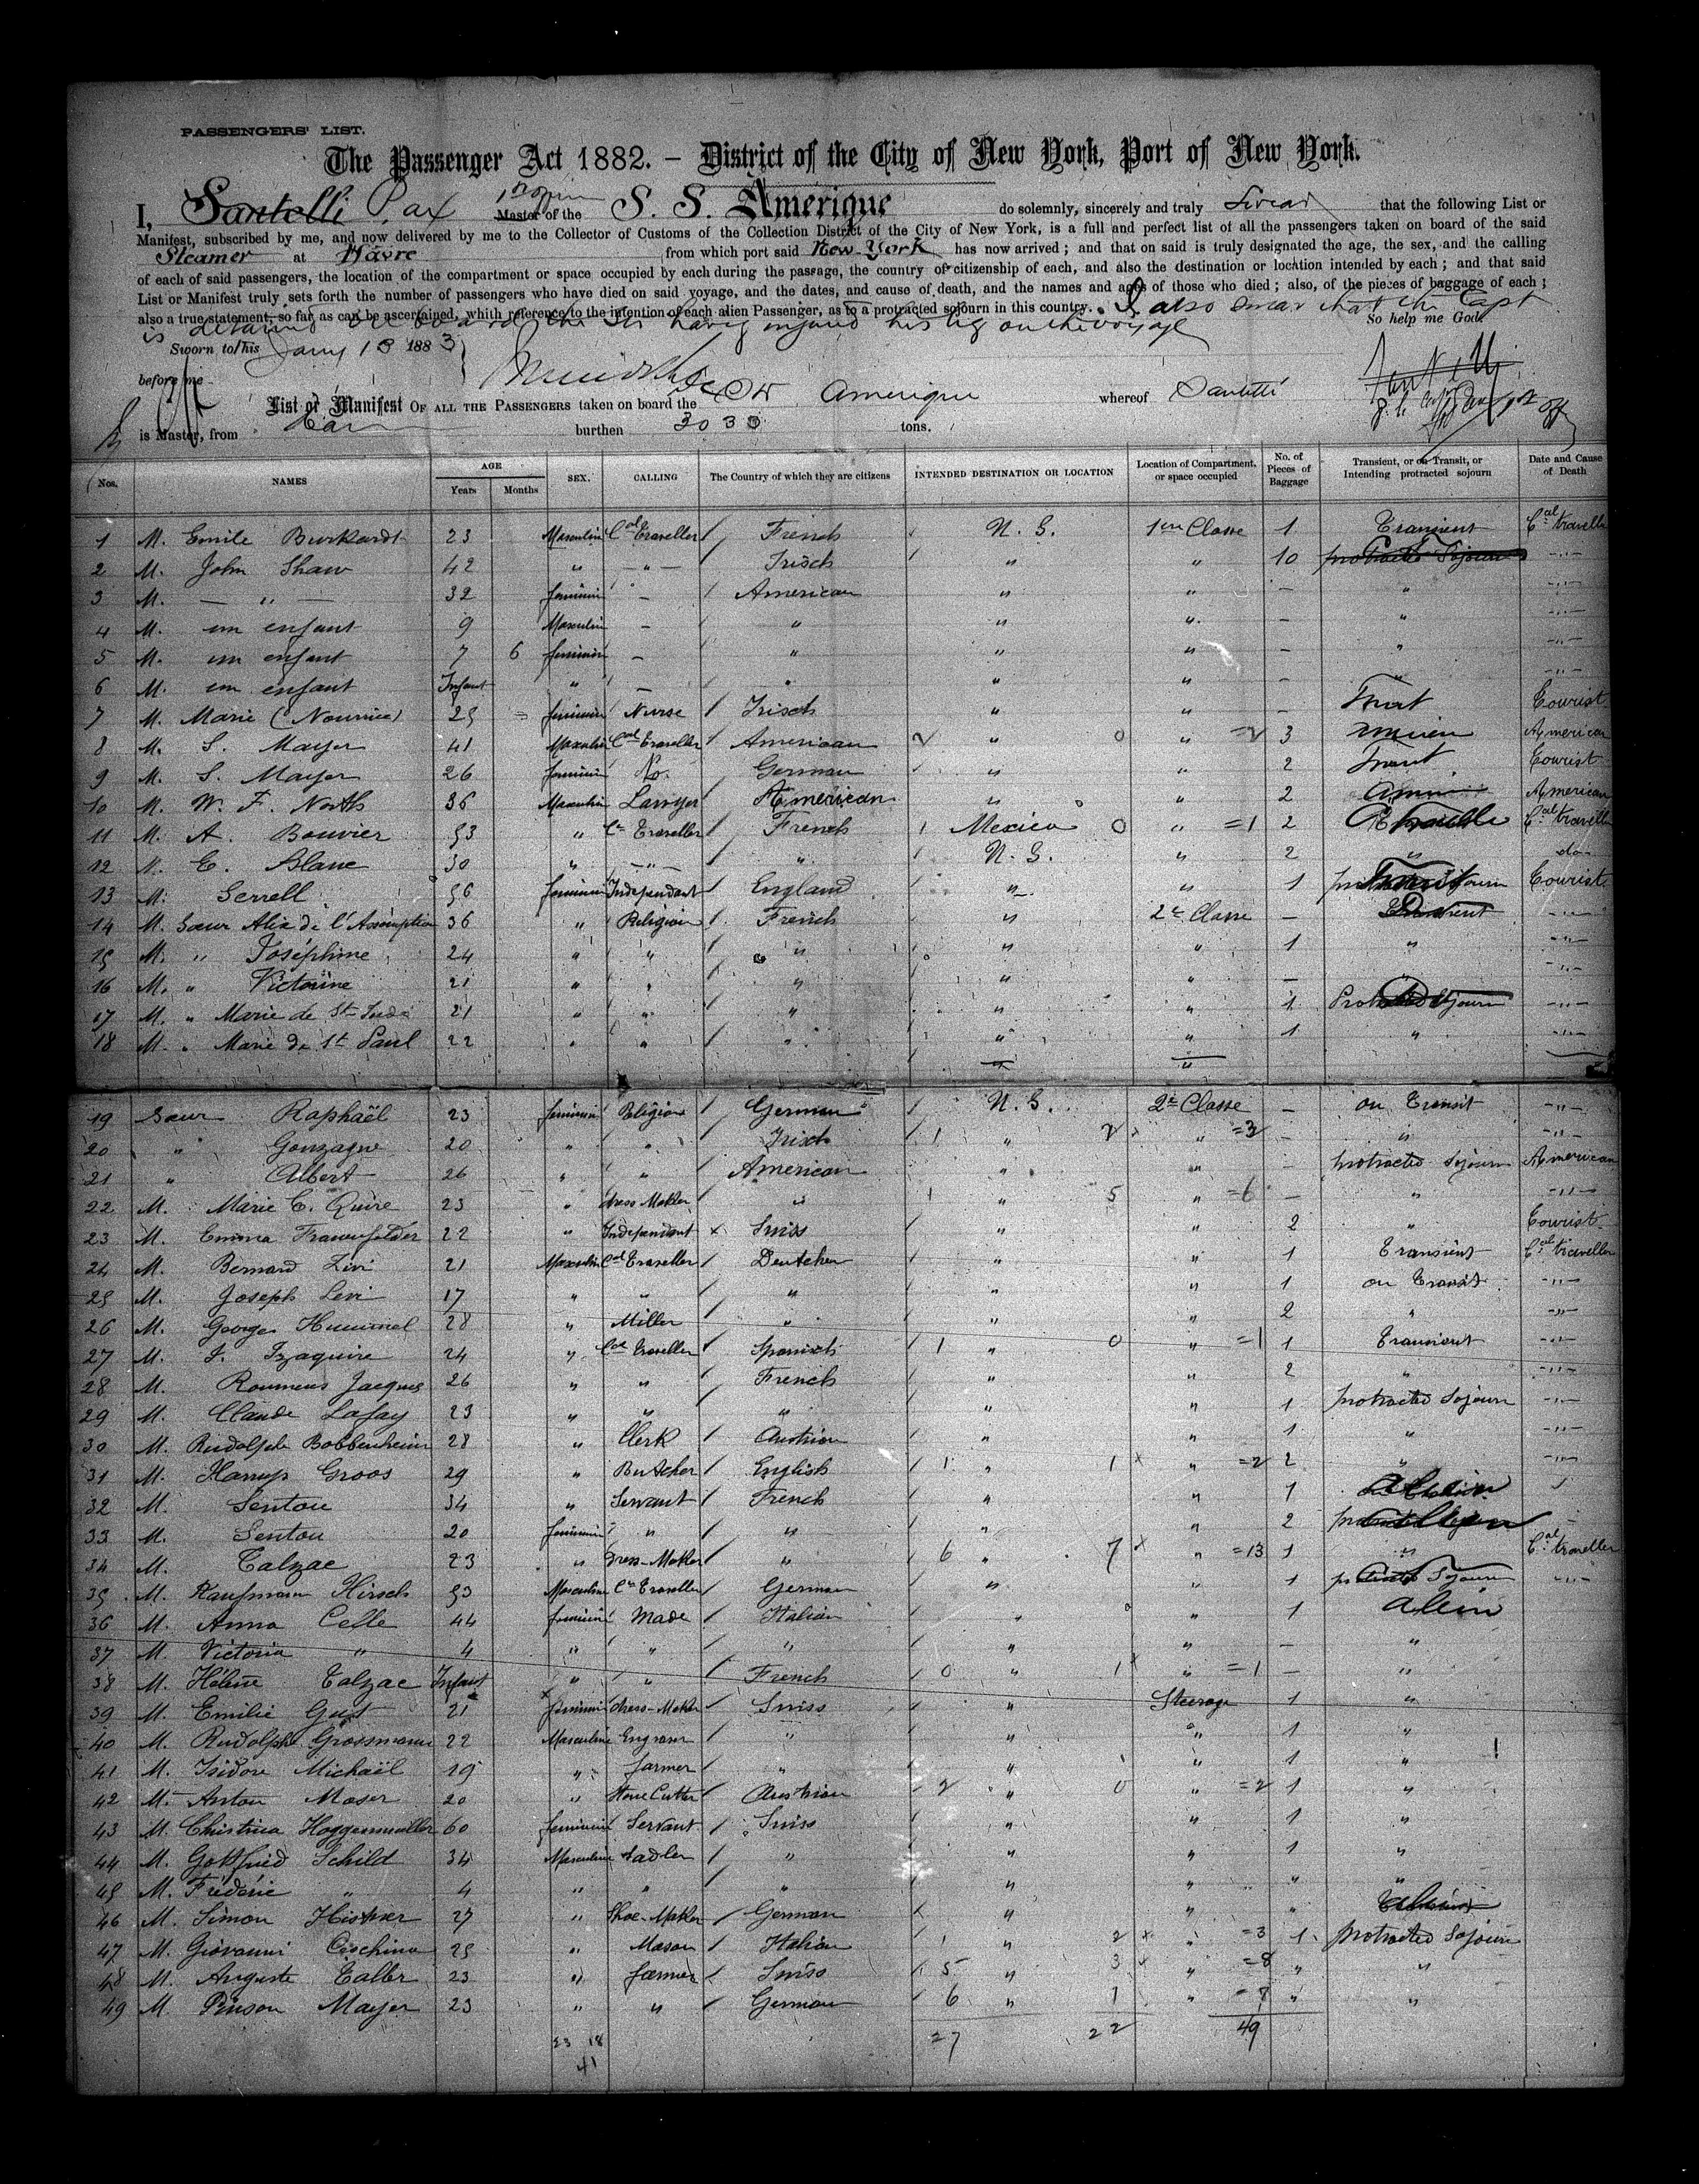 PASSENGERS' LIST.
The Passenger Act 1882. – District of the City of New York, Port of New York.
I, Santelli Pax Master of the S. S. Amerique do solemnly, sincerely and truly Swear that the following List or
Manifest, subscribed by me, and now delivered by me to the Collector of Customs of the Collection District of the City of New York, is a full and perfect list of all the passengers taken on board of the said
Steamer at Havre from which port said New-York has now arrived; and that on said is truly designated the age, the sex, and the calling
of each of said passengers, the location of the compartment or space occupied by each during the passage, the country of citizenship of each, and also the destination or location intended by each; and that said
List or Manifest truly sets forth the number of passengers who have died on said voyage, and the dates, and cause of death, and the names and ages of those who died; also, of the pieces of baggage of each;
also a true statement, so far as can be ascertained, whith reference to the intention of each alien Passenger, as to a protracted sojourn in this country. I also swear that the Capt
So help me God.
is detained on board the Str having injured his leg on the voyage
Sworn to this Jany 13 1883
before me
List or Manifest OF ALL THE PASSENGERS taken on board the Amerique whereof Santelli
is Master, from burthen 3030 tons.
Nos. NAMES AGE Years Months SEX. CALLING The Country of which they are citizens INTENDED DESTINATION OR LOCATION Location of Compartment, or space occupied No. of Pieces of Baggage Transient, or on Transit, or Intending protracted sojourn Date and Cause of Death
1 M. Emile Burkardt 23 Masculin Cal Traveller French N. G. 1re Classe 1 Transient Cal travelle
2 M. John Shaw 42 " — " — Irisch " " 10 protracted Sojourn -"-
3 M. — " — 32 feminin — American " " — " -"-
4 M. un enfant 9 Masculin — " " " — " -"-
5 M. un enfant 7 6 feminin — " " " — " -"-
6 M. un enfant Infant " — " " " — -"-
7 M. Marie (Nourrice) 25 feminin Nurse Irisch " " — Tourist
8 M. S. Mayer 41 Masculin Cal Traveller American 2 " 0 " =2 3 American
9 M. S. Mayer 26 feminin No. German " " 2 Tourist
10 M. W. F. North 36 Masculin Lawyer American " " 2 American
11 M. A. Bouvier 53 " Cl Traveller French 1 Mexico 0 " =1 2 Cal travell
12 M. C. Blanc 30 " — " — " N. G. " 2 " do
13 M. Serrell 56 feminin Independant England " " 1 Tourist
14 M. Soeur Alix de l'Assomption 36 " Religion French " 2e Classe — -"-
15 M. " Joséphine 24 " " " " " 1 " -"-
16 M. " Victorine 21 " " " " " — -"-
17 M. " Marie de St 21 " " " " " 1 Protracted Sojourn -"-
18 M. " Marie de St Paul 22 " " " " " 1 " -"-
" "
19 Soeur Raphaël 23 feminin Religion German N. G. 2e Classe — on Transit -"-
20 " Gonzague 20 " " Irisch 1 " 2 " =3 — " -"-
21 " Albert 26 " " American " " — protracted Sojourn American
22 M. Marie C. Quire 23 " dress Maker " 1 " 5 " =6 — " -"-
23 M. Emma Frauenfelder 22 " Independant Swiss " " 2 " Tourist
24 M. Bernard 21 Masculin Cal Traveller Deutcher " " 1 Transient Cal traveller
25 M. Joseph Levi 17 " " " " " 1 on Transit -"-
26 M. George Hummel 28 " Miller " " " 2 " -"-
27 M. J. Izaguire 24 " Cal Traveller Spanisch 1 " 0 " =1 1 Transient -"-
28 M. Roumens Jacques 26 " " French " " 2 " -"-
29 M. Claude Lafay 23 " " " " " 1 protracted Sojourn -"-
30 M. Rudolph Bobbenheim 28 " Clerk Austrian " " 1 " -"-
31 M. Groos 29 " Butcher English 1 " 1 " =2 2 " -"-
32 M. Sentou 34 " Servant French " " 1
33 M. Sentou 20 feminin " " " " 2 -
34 M. Talzac 23 " Dress-Maker " 6 " 7 " =13 1 " Cal traveller
35 M. Kaufmann Hirsch 53 Masculine Cl Traveller German " " 1 protracted Sojourn -"-
36 M. Anna Celle 44 feminin Made Italian " " 1 alien
37 M. Victoria " 4 " " " " " — "
38 M. Hélène Talzac Infant " " French 0 " 1 " =1 — "
39 M. Emilie Gust 21 feminin dress-Maker Swiss " Steerage 1 "
40 M. Rudolph Grossmann 22 Masculine Engraver " " " 1 "
41 M. Isidore Michaël 19 " farmer " " " 1 "
42 M. Anton Moser 20 " Stone Cutter Austrian 2 " 0 " =2 1 "
43 M. Christina Haggenmuller 60 feminin Servant Swiss " " 1 "
44 M. Gottfried Schild 34 Masculine Sadler " " " 1 "
45 M. Fréderic " 4 " " " " " " "
46 M. Simon 27 " Shoe-Maker German " " "
47 M. Giovanni Cischino 25 " Mason Italian 1 " 2 " =3 1 protracted Sojourn
48 M. Auguste 23 " farmer Swiss 5 " 3 " =8 " "
49 M. Pinson Mayer 23 " " German 6 " 1 " =7 " "
23 18 27 22 49
41